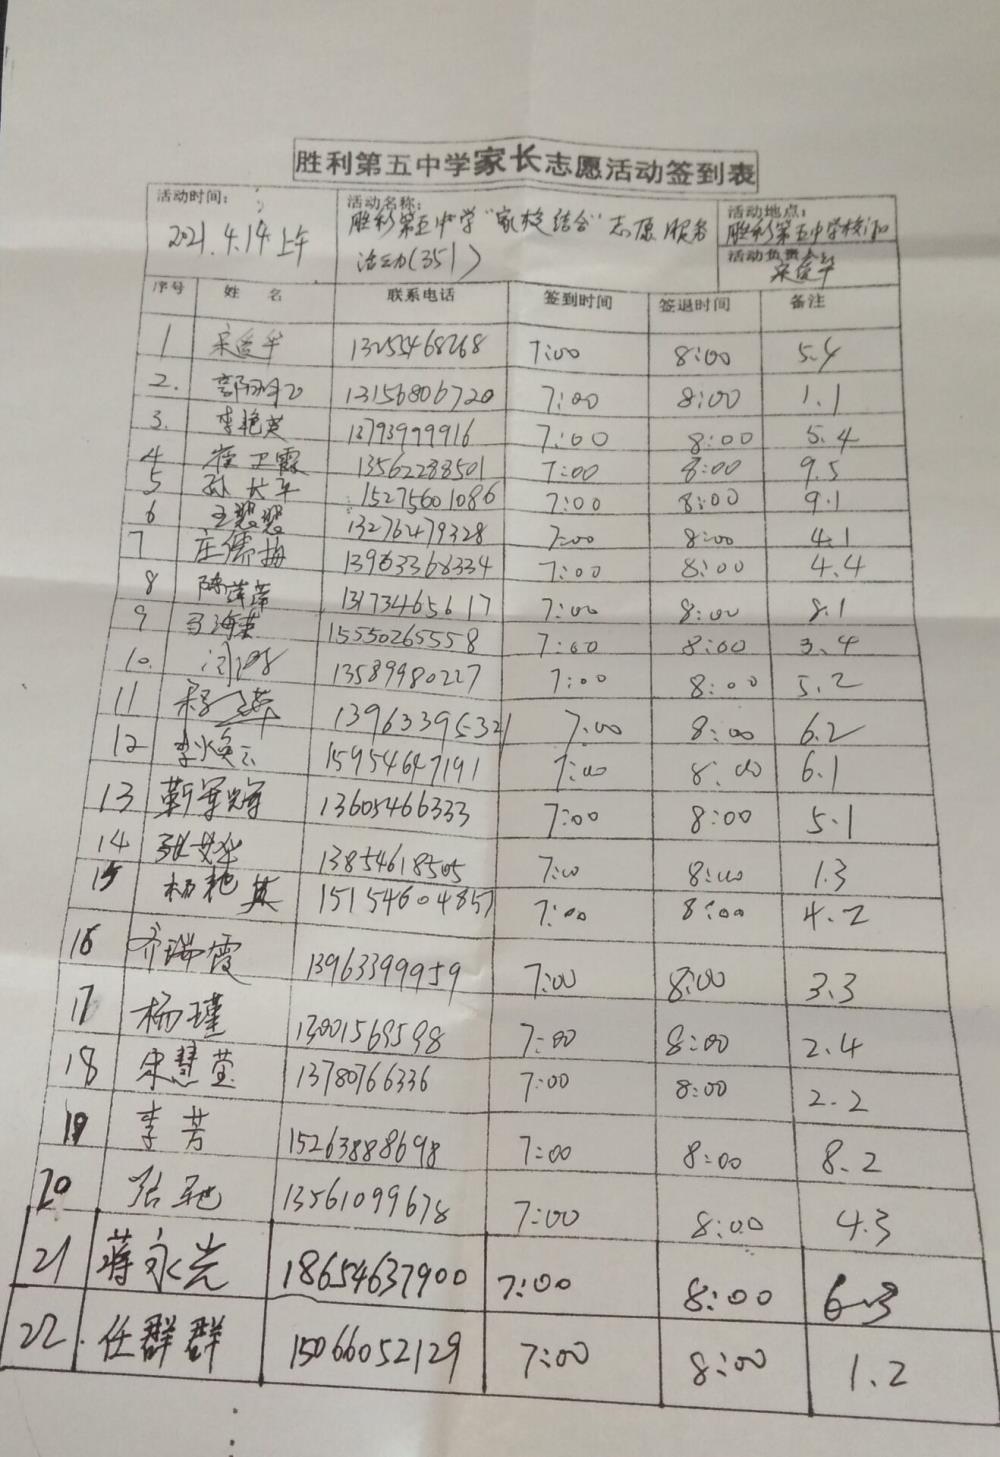 胜利第五中学家长志愿活动签到表
活动时间： 2021.4.14上午
活动名称： 胜利第五中学"家校结合"志愿服务
活动(351)
活动地点： 胜利第五中学校门口
活动负责人： 宋俊华
序号 姓名 联系电话 签到时间 签退时间 备注
1 宋俊华 13255468268 7:00 8:00 5.4
2. 13156806720 7:00 8:00 1.1
3. 李艳英 13793999916 7:00 8:00 5.4
4 崔卫霞 13562288501 7:00 8:00 9.5
5 孙长军 15275601086 7:00 8:00 9.1
6 王翠翠 13276479328 7:00 8:00 4.1
7 庄儒梅 13963368334 7:00 8:00 4.4
8 陈萍萍 13173465617 7:00 8:00 8.1
9 马海英 15550265558 7:00 8:00 3.4
10. 13589980227 7:00 8:00 5.2
11 13963395321 7:00 8:00 6.2
12 李焕云 15954647191 7:00 8:00 6.1
13 靳军辉 13605466333 7:00 8:00 5.1
14 13854618505 7:00 8:00 1.3
15 杨艳英 15154604857 7:00 8:00 4.2
16 齐瑞霞 13963399959 7:00 8:00 3.3
17 杨瑾 13001569598 7:00 8:00 2.4
18 宋慧莹 13780766336 7:00 8:00 2.2
19 李芳 15263888698 7:00 8:00 8.2
20 张艳 13561099678 7:00 8:00 4.3
21 蒋永光 18654637900 7:00 8:00 6.3
22. 任群群 15066052129 7:00 8:00 1.2